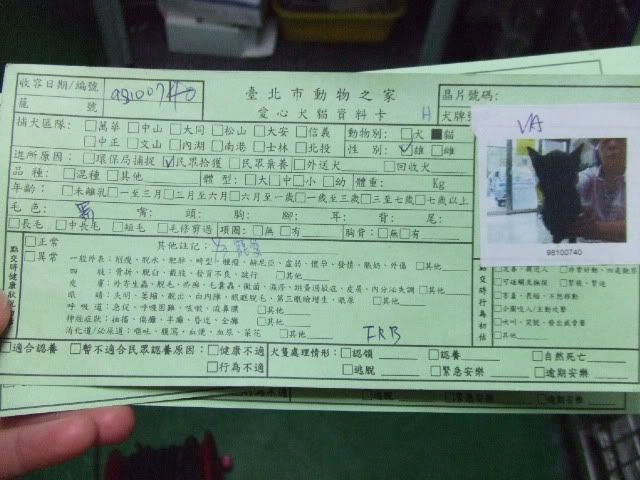 收容日期/編號 98100740
臺北市動物之家
晶片號碼:
籠 號
愛心犬貓資料卡 H
犬牌號
VA
98100740
捕犬區隊: □萬華 □中山 □大同 □松山 □大安 □信義
□中正 □文山 □內湖 □南港 □士林 □北投
動物別: □犬 ■貓
性 別: ☑雄 □雌
進所原因: □環保局捕捉 ☑民眾拾獲 □民眾棄養 □外送犬 □回收犬
品 種: □混種 □其他 體 型: □大□中□小□幼 體重: Kg
年齡: □未離乳 □一至三月 □三至六月 □六月至一歲 □一歲至三歲 □三至七歲 □七歲以上
毛 色: 黑 嘴: 頭: 胸: 腳: 耳: 背: 尾:
□長毛 □中長毛 □短毛 □毛修剪過 項圈: □無 □有 胸背: □無 □有
點交時健康狀況
□正常
□異常
其他註記:
一般外表: 削瘦、脫水、肥胖、畸型、腫瘤、赫尼亞、虛弱、懷孕、發情、脹奶、外傷 □其他
四 肢: 骨折、脫臼、截肢、發育不良、跛行 □其他
皮 膚: 外寄生蟲、脫毛、疥癬、毛囊蟲、黴菌、濕疹、跳蚤過敏症、皮屑、內分泌失調 □其他
眼 睛: 失明、萎縮、脫出、白內障、眼瞼脫毛、第三眼瞼增生、眼屎 □其他
呼吸道: 急促、呼吸困難、咳嗽、流鼻膿 □其他
神經症狀: 抽搐、癱瘓、半癱、昏迷、全癱 □其他
消化道/泌尿道: 嘔吐、腹瀉、血便、血尿、菜花 □其他
IRB
點交時行為初估
□其他
□適合認養 □暫不適合民眾認養原因: □健康不適
□行為不適
犬隻處理情形: □認領 □認養 □自然死亡
□逃脫 □緊急安樂 □逾期安樂
□逃脫 □緊急安樂 □逾期安樂